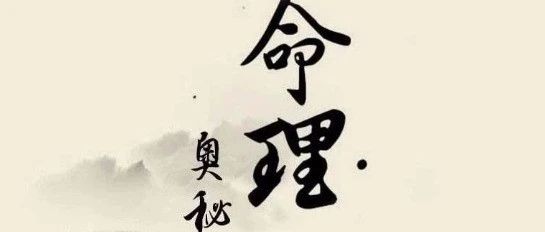 命理
奥秘